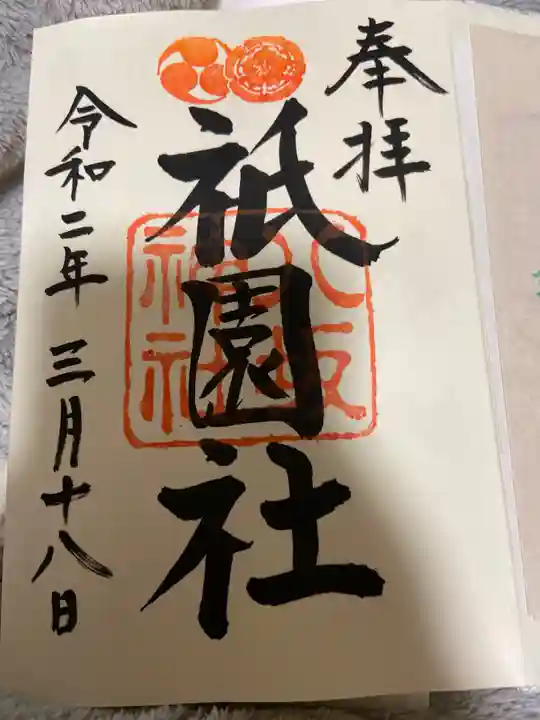 奉拝
八坂神社
祇園社
令和二年三月十八日